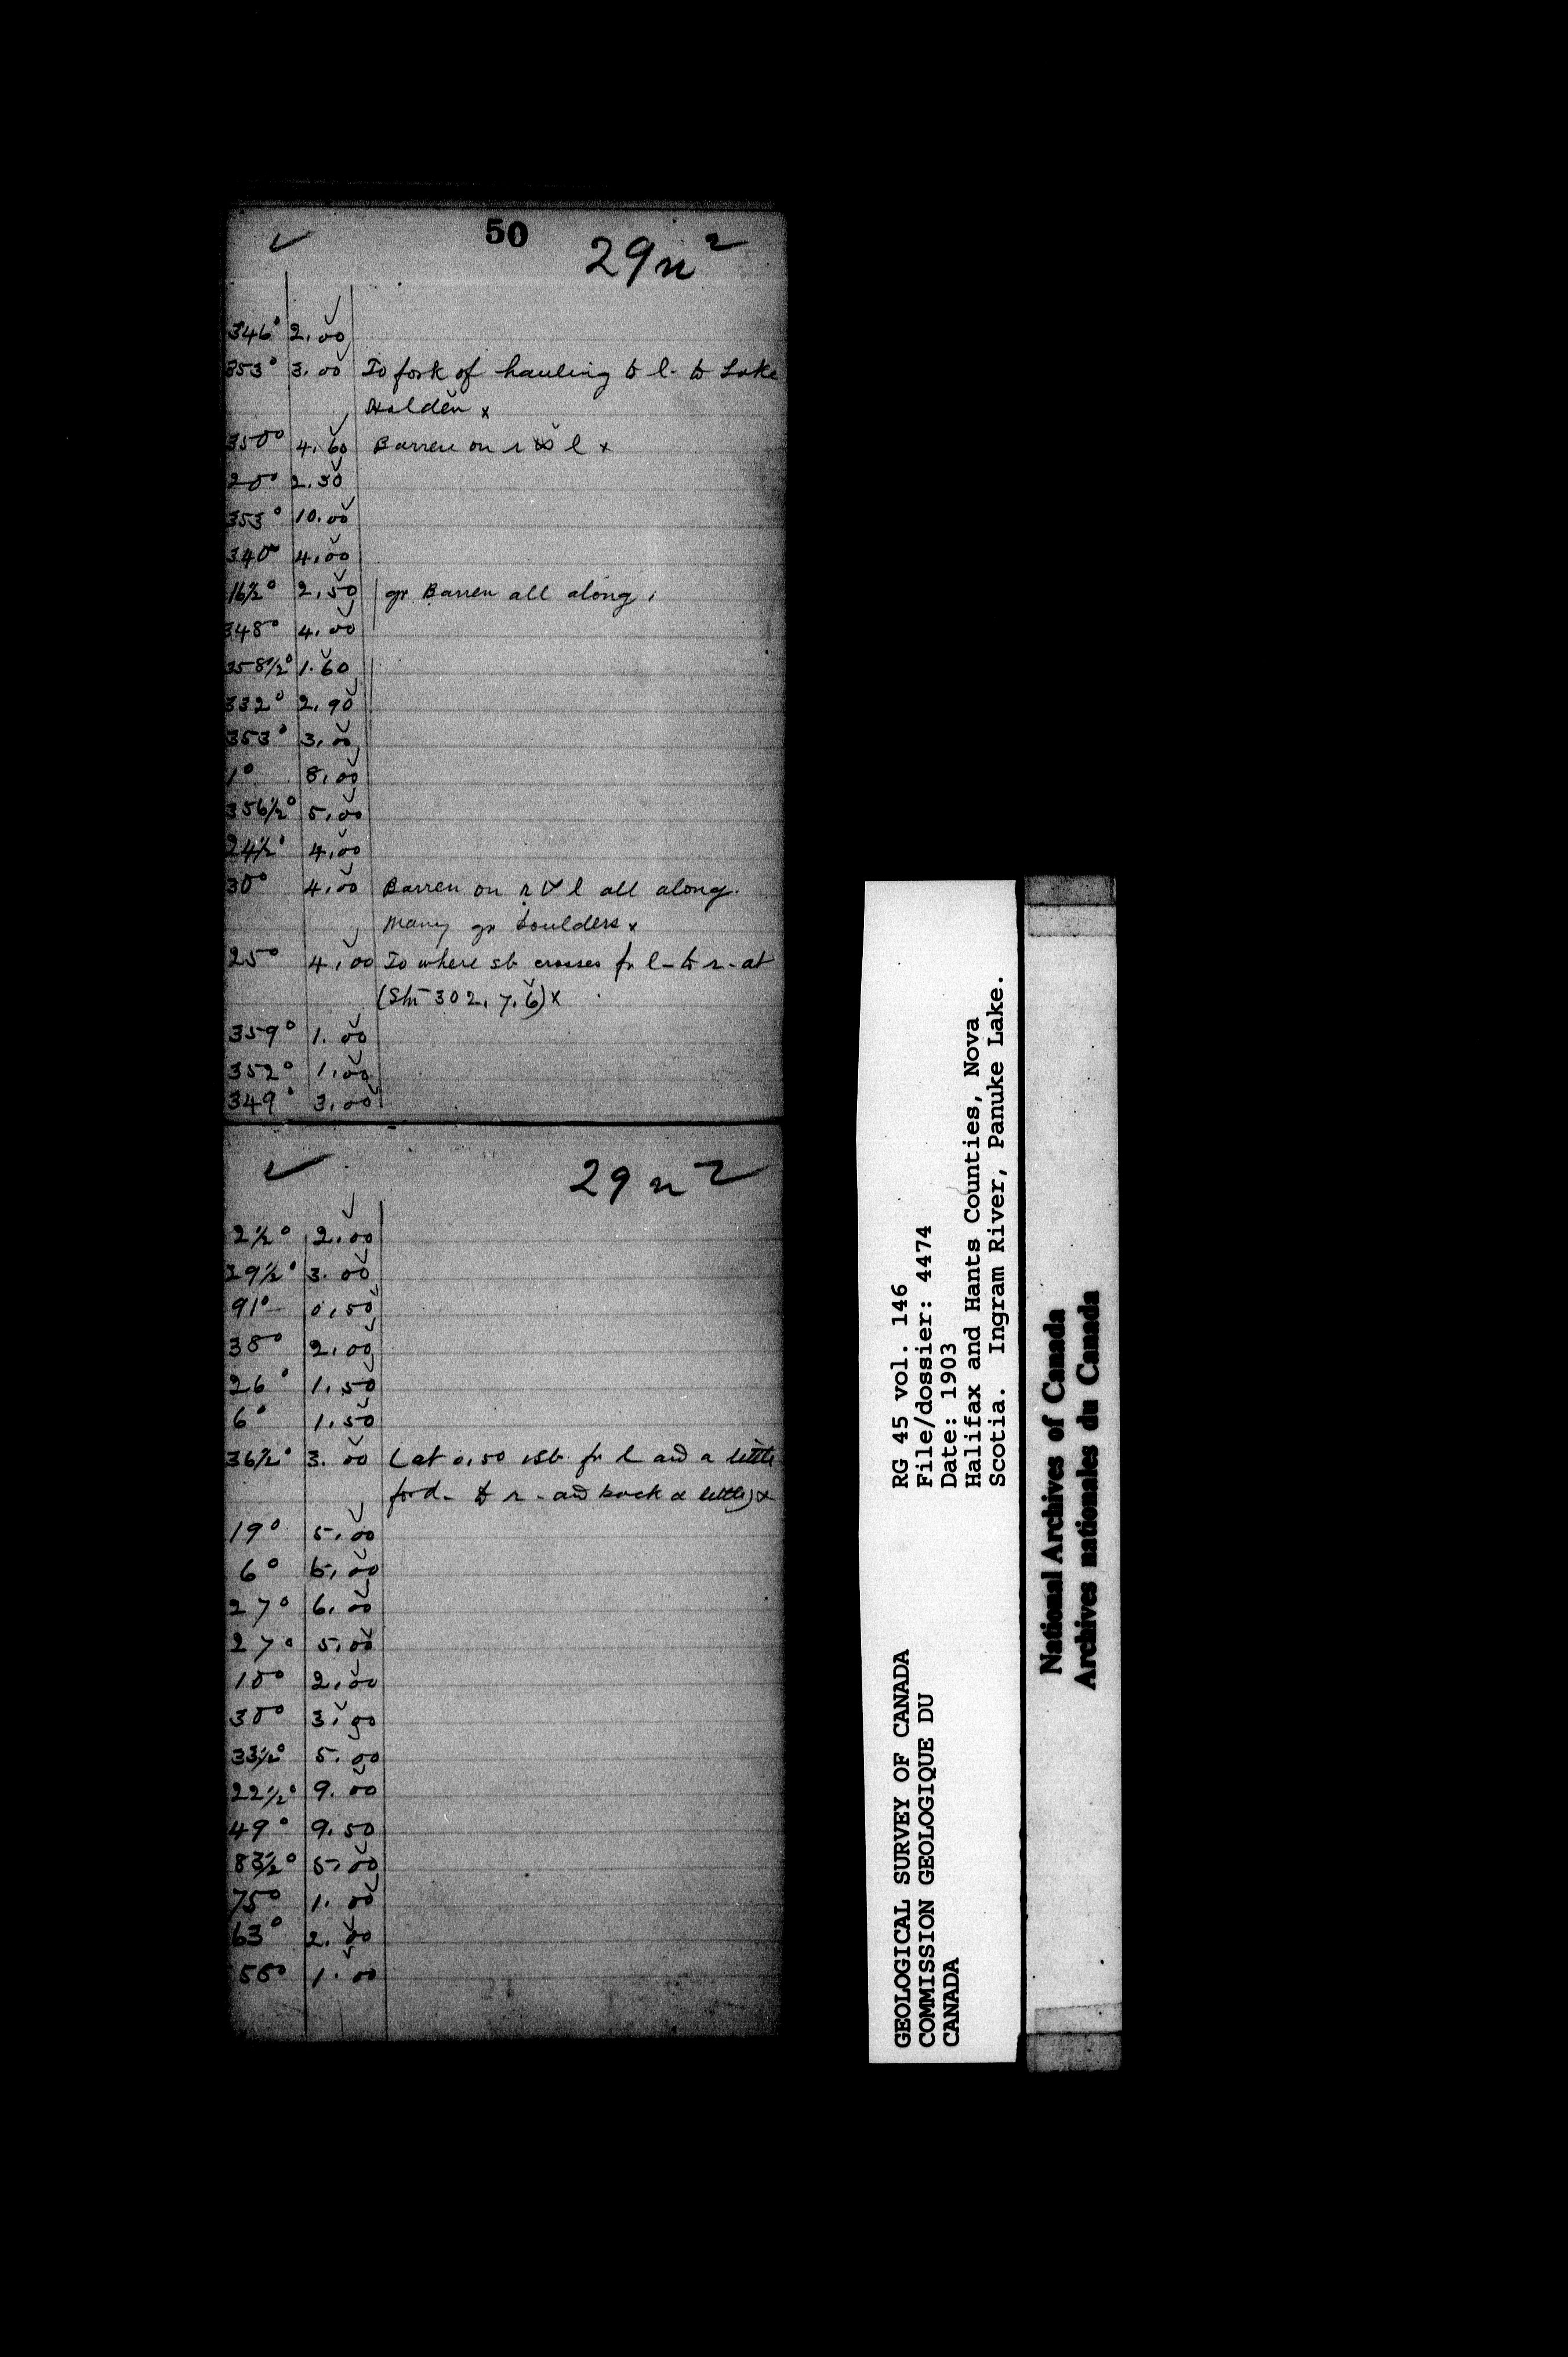 50
✓ 29 n 2
346° 2.00
353° 3.00 To fork of hauling to l- to Lake
Holden x
350° 4.60 Barren on r & l x
20° 2.50
353° 10.00
340° 4.00
16½° 2.50 gr Barren all along
348° 4.00
358½° 1.60
332° 2.90
353° 3.00
1° 8.00
356½° 5.00
24½° 4.00
30° 4.00 Barren on r & l all along.
Many gr boulders x
25° 4.00 To where sb crosses fr l- to r- at
(Sht 302, 7.6) x
359° 1.00
352° 1.00
349° 3.00
✓ 29 n 2
2½° 2.00
29½° 3.00
91° 0.50
38° 2.00
26° 1.50
6° 1.50
36½° 3.00 (at 0.50 sb fr l and a little
ford- to r- and back a little) x
19° 5.00
6° 5.00
27° 6.00
27° 5.00
10° 2.00
30° 3.50
33½° 5.00
22½° 9.00
49° 9.50
83½° 5.00
75° 1.00
63° 2.00
56° 1.00
GEOLOGICAL SURVEY OF CANADA
COMMISSION GEOLOGIQUE DU
CANADA
RG 45 vol. 146
File/dossier: 4474
Date: 1903
Halifax and Hants Counties, Nova
Scotia. Ingram River, Panuke Lake.
National Archives of Canada
Archives nationales du Canada